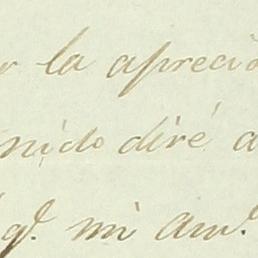 r la aprecia
nido diré a
qᵉ. mi am.ᵒ